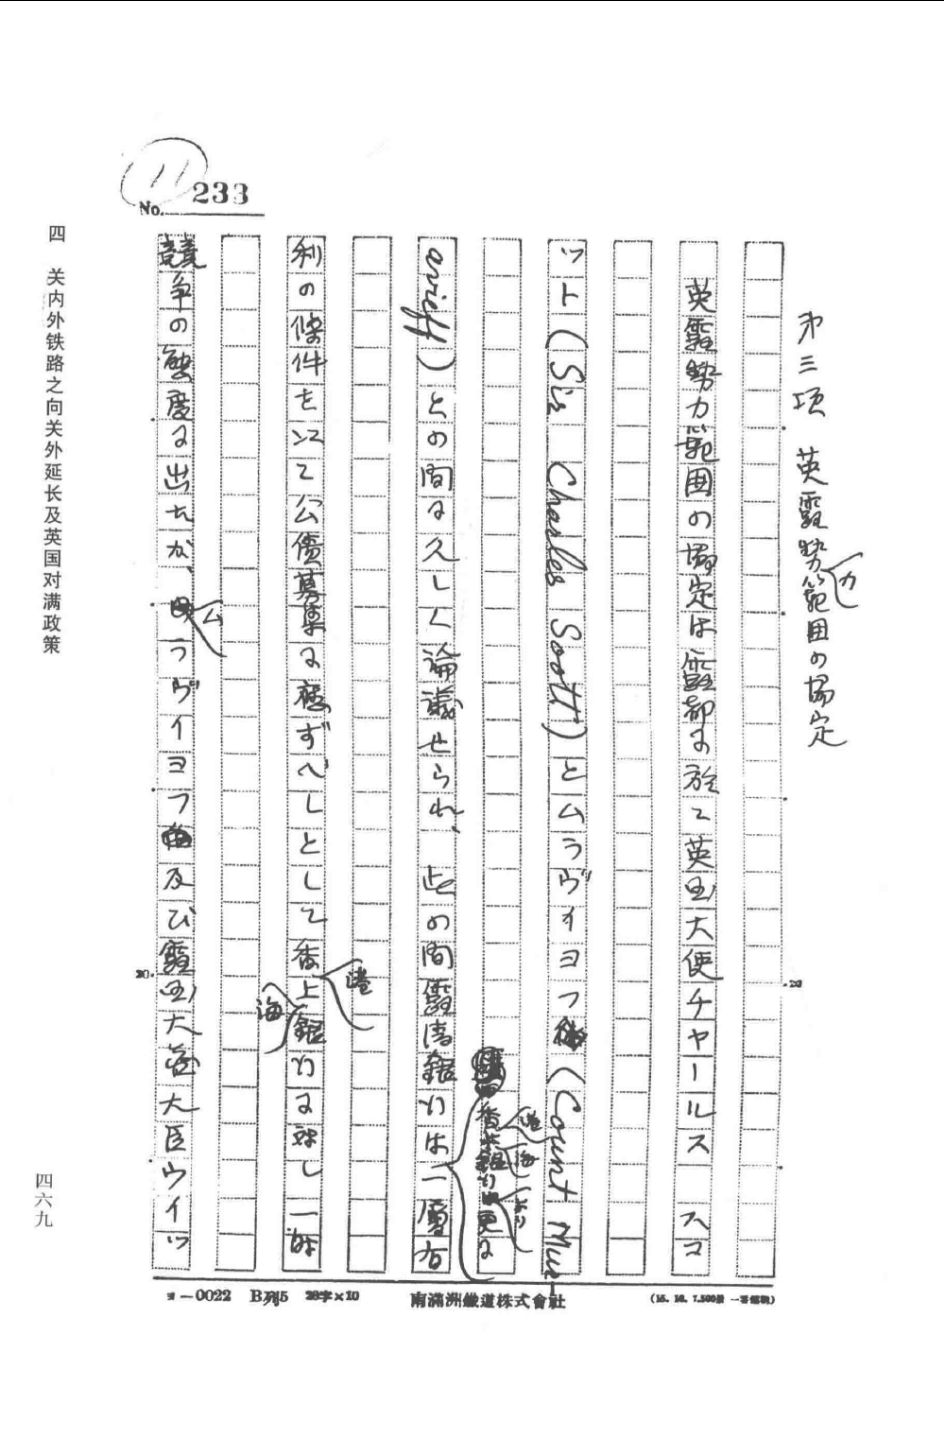 11
No. 233
第三項 英露勢力範囲の協定
英露勢力範囲の協定は露都に於て英国大使チャールス スコ
ット(Sir Charles Scott)とムラヴィヨフ(Count Mur-
香港上海銀行より更に
avieff)との間に久しく論議せられ、此の間露清銀行は一層有
利の條件を以て公債募集に應ずべしとして香港上海銀行に対し一時
競争の態度に出たが、ムラヴィヨフ及び露国大蔵大臣ウイツ
20
20
ヨ-0022 B列5 28字×10 南滿洲鐵道株式會社
四 关内外铁路之向关外延长及英国对满政策
四六九